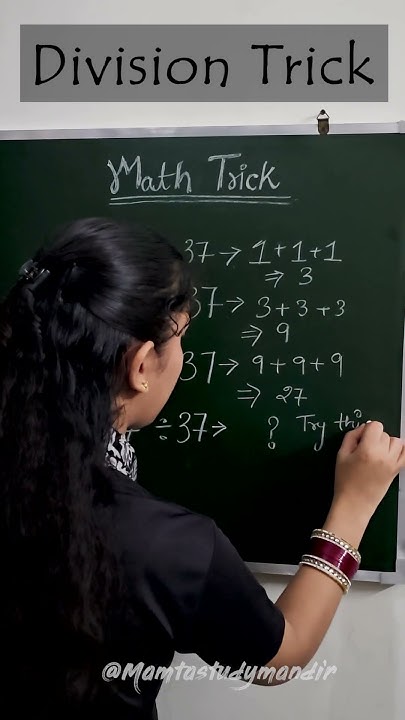 Division Trick
Math Trick
37 → 1+1+1
⇒ 3
37 → 3+3+3
⇒ 9
37 → 9+9+9
⇒ 27
÷37 → ? Try
@Mamtastudymandir